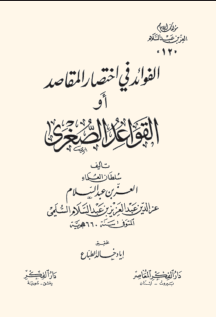 مؤلفات الإمام
العز بن عبد السلام
«١٢»
الفوائد في اختصار المقاصد
أو
القواعد الصغرى
تأليف
سلطان العلماء
العز بن عبد السلام
عز الدين عبد العزيز بن عبد السلام السلمي
المتوفى سنة ٦٦٠ هجرية
تحقيق
إياد خالد الطباع
دار الفكر المعاصر
بيروت - لبنان
دار الفكر
دمشق - سورية